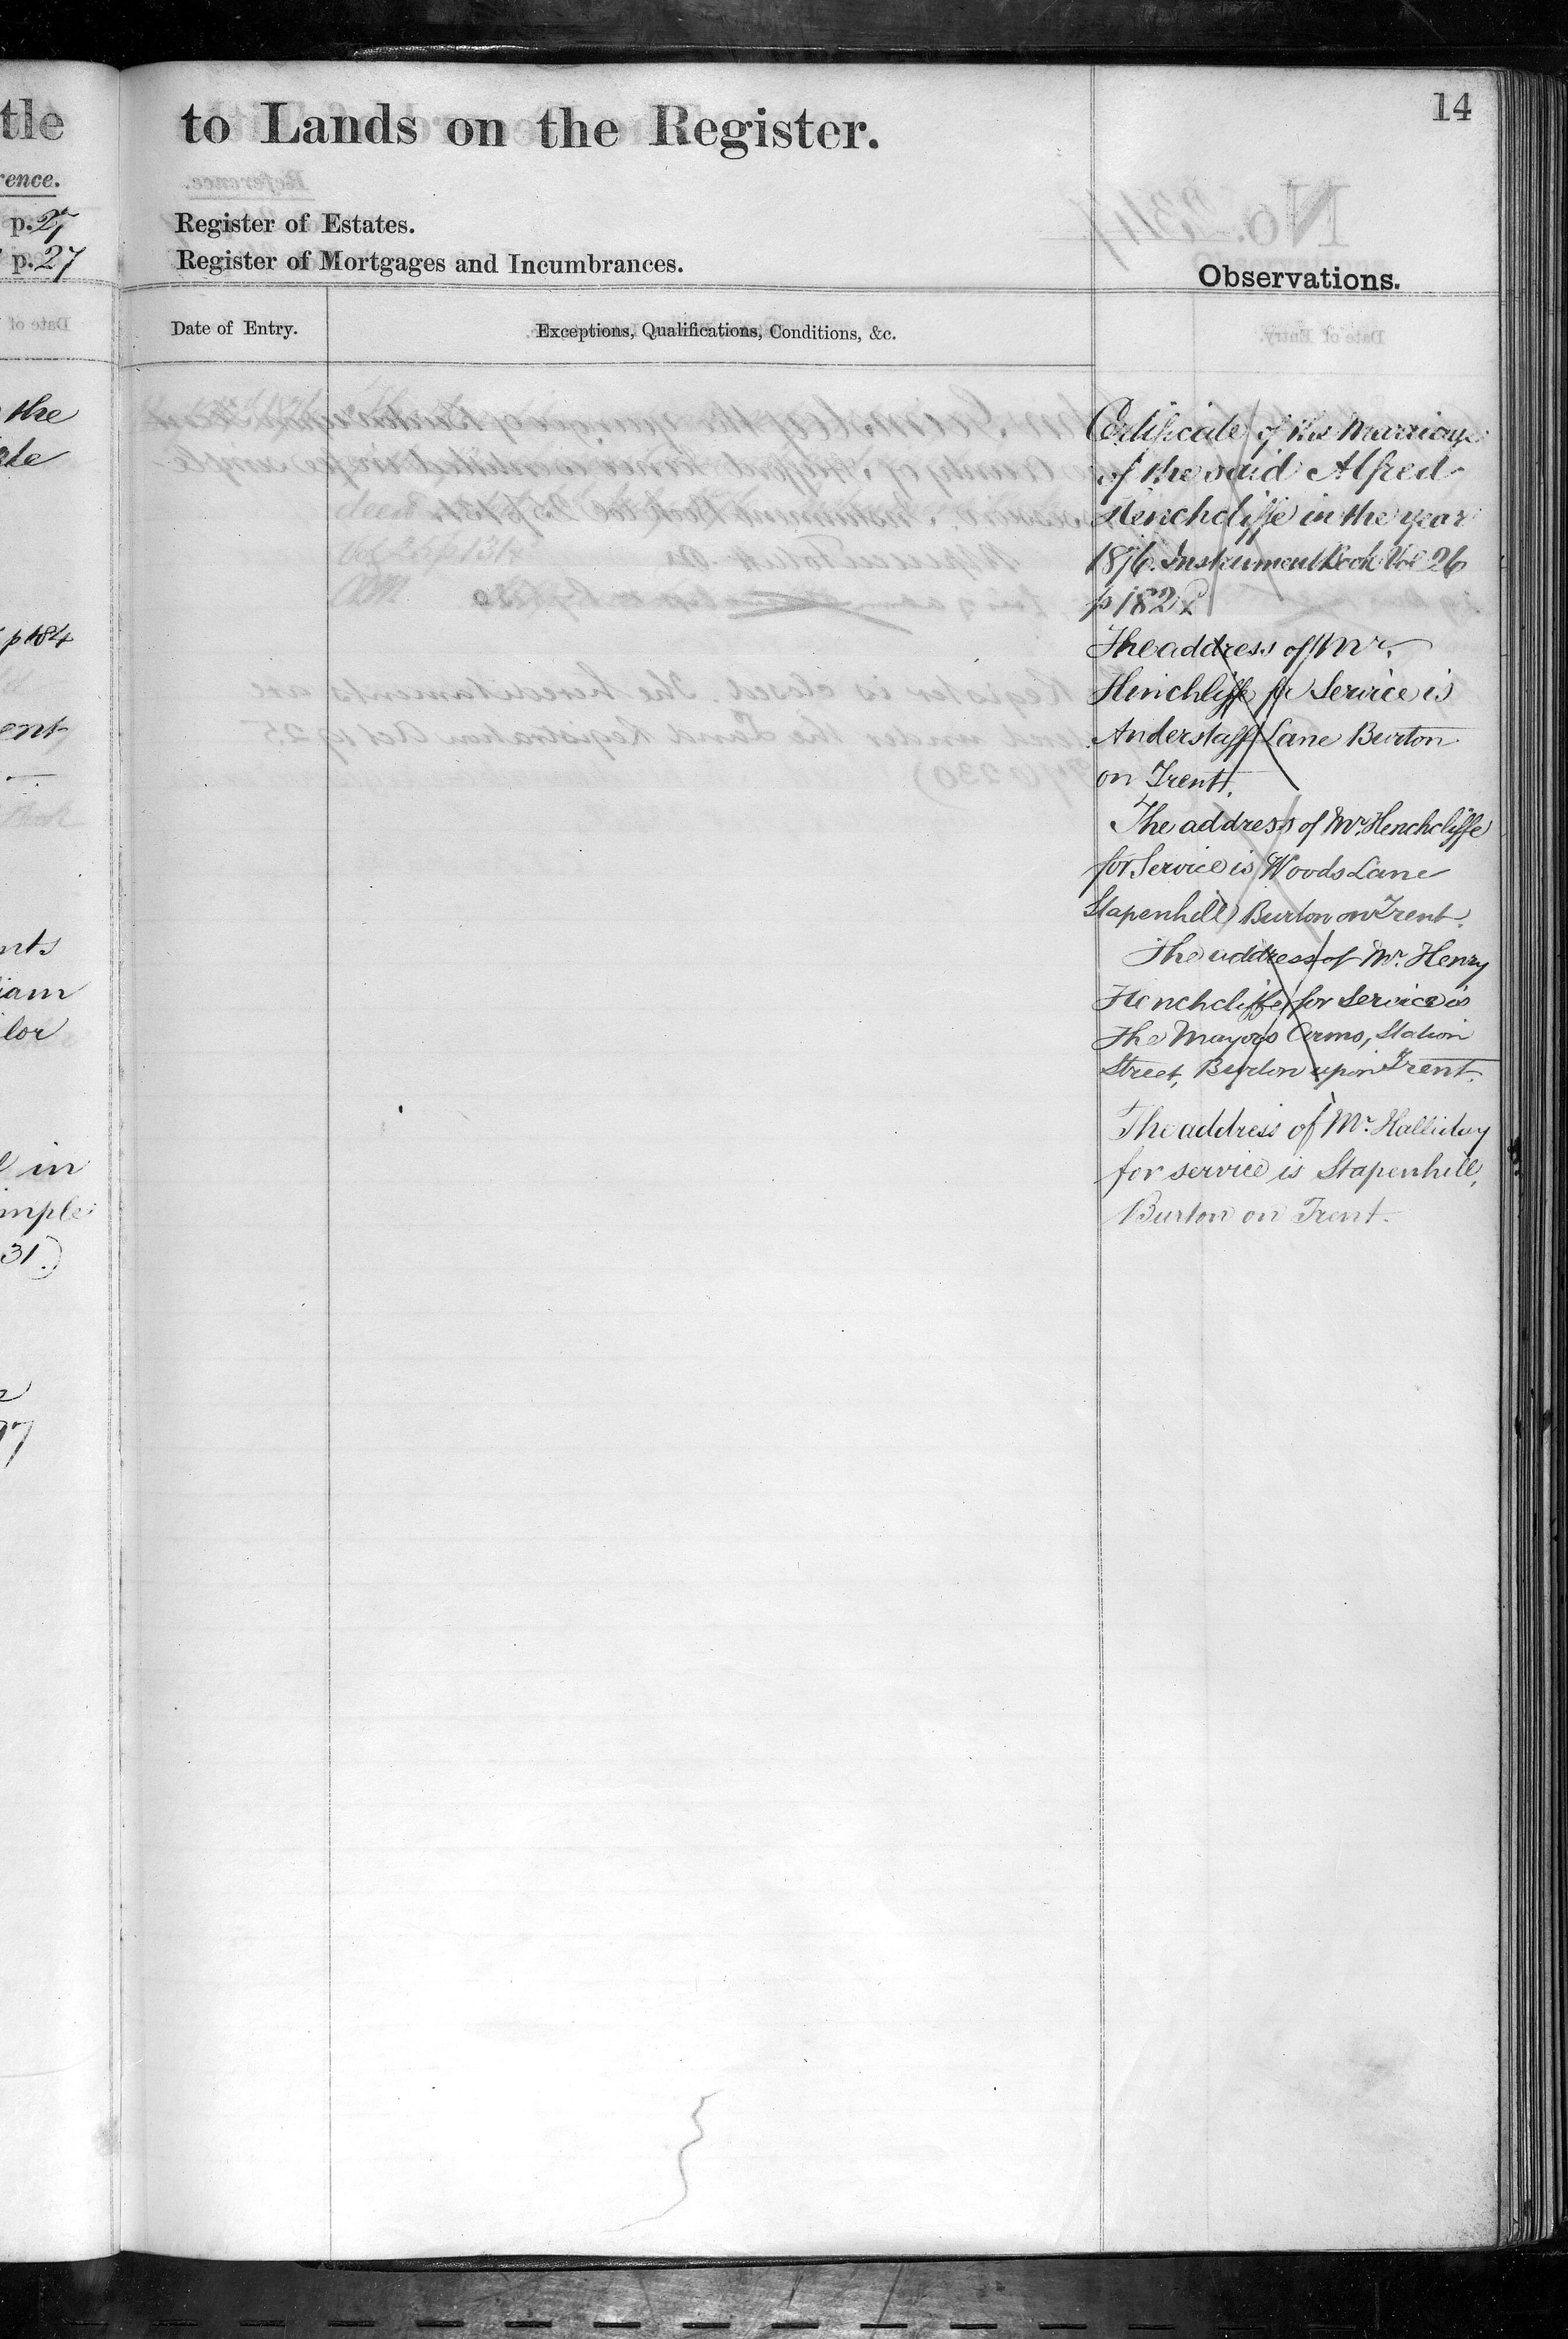 tle
rence.
p. 27
p. 27
the
p 184
ent
nts
iam
lor
in
imple
31.)
to Lands on the Register.
14
Register of Estates.
Register of Mortgages and Incumbrances.
Observations.
Date of Entry.
Exceptions, Qualifications, Conditions, &c.
Certificate of the Marriage
of the said Alfred
Henchcliffe in the year
1876. Instrument Book Vol 26
p 182
The address of Mr.
Hinchliffe for Service is
Anderstaff Lane Burton
on Trent.
The address of Mr. Henchcliffe
for Service is Woods Lane
Stapenhill Burton on Trent.
The address of Mr. Henry
Henchcliffe for Service is
The Mayors Arms, Station
Street, Burton upon Trent.
The address of Mr. Halliday
for service is Stapenhill,
Burton on Trent.